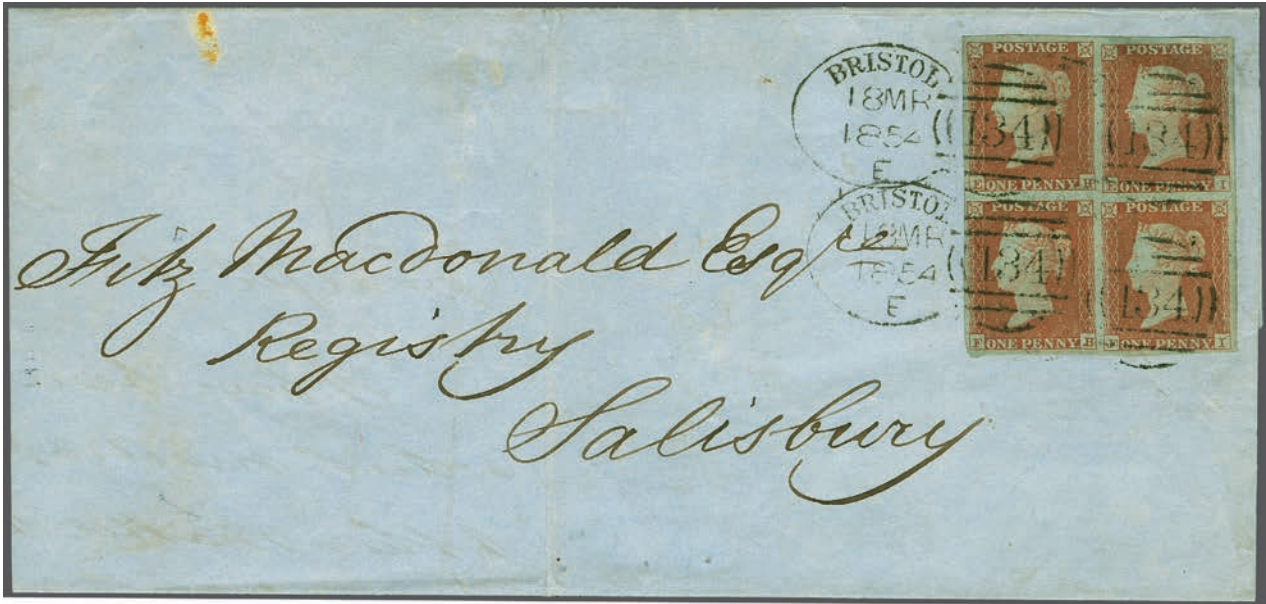 BRISTOL
18MR
1854
E
BRISTOL
18MR
1854
E
POSTAGE
134
ONE PENNY
H
POSTAGE
134
ONE PENNY
I
POSTAGE
134
ONE PENNY
H
POSTAGE
134
ONE PENNY
I
Fitz Macdonald Esqre
Registry
Salisbury